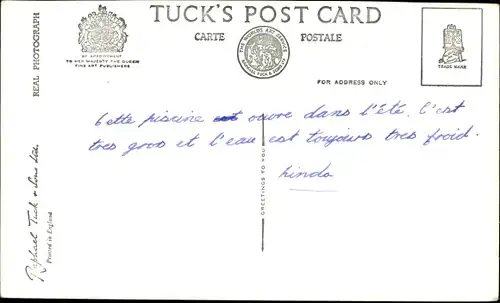 TUCK'S POST CARD
CARTE POSTALE
REAL PHOTOGRAPH
BY APPOINTMENT
TO HER MAJESTY THE QUEEN
FINE ART PUBLISHERS
THE WORLD'S ART SERVICE
RAPHAEL TUCK & SONS LTD
TRADE MARK
FOR ADDRESS ONLY
Cette piscine est ouvre dans l'été. C'est
tres gros et l'eau est toujours tres froid.
Linda
GREETINGS TO YOU
Raphael Tuck & Sons Ltd.
Printed in England